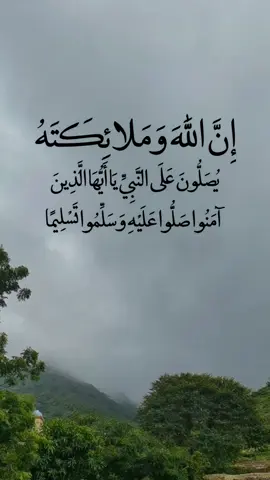 إِنَّ اللَّهَ وَمَلَائِكَتَهُ
يُصَلُّونَ عَلَى النَّبِيِّ يَا أَيُّهَا الَّذِينَ
آمَنُوا صَلُّوا عَلَيْهِ وَسَلِّمُوا تَسْلِيمًا